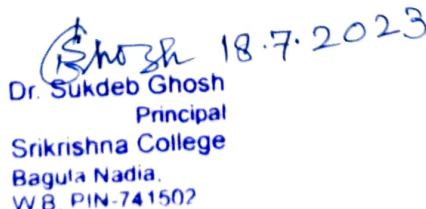 SGhosh 18.7.2023
Dr. Sukdeb Ghosh
Principal
Srikrishna College
Bagula Nadia.
W.B. PIN-741502